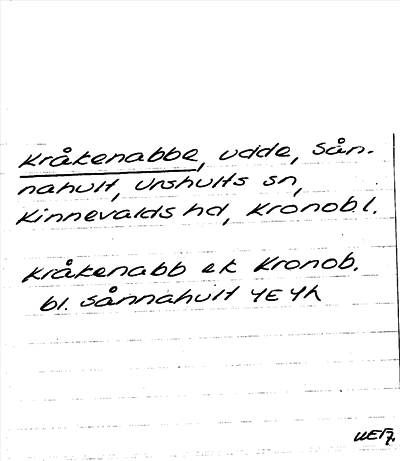 Kråkenabbe, udde, Sån-
nahult, Urshults sn,
Kinnevalds hd, Kronob.l.
Kråkenabb ek Kronob.
bl. Sånnahult 4E4h